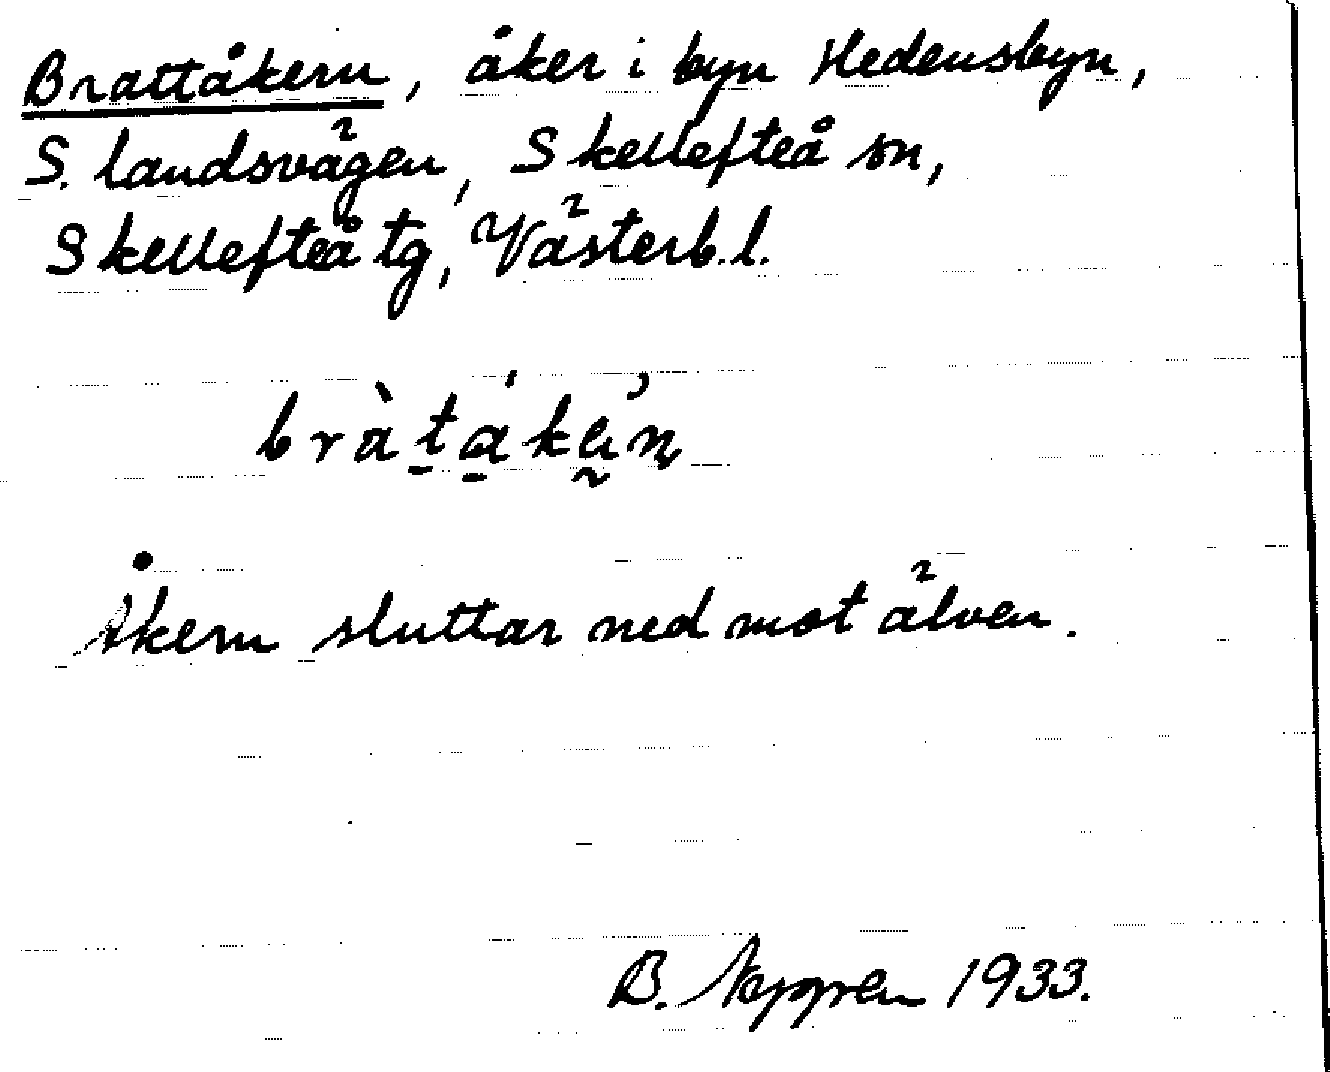 Brattåkern, åker i byn Hedensbyn,
S. landsvägen, Skellefteå sn,
Skellefteå tg, Västerb.l.
Åkern sluttar ned mot älven.
B. 1933.